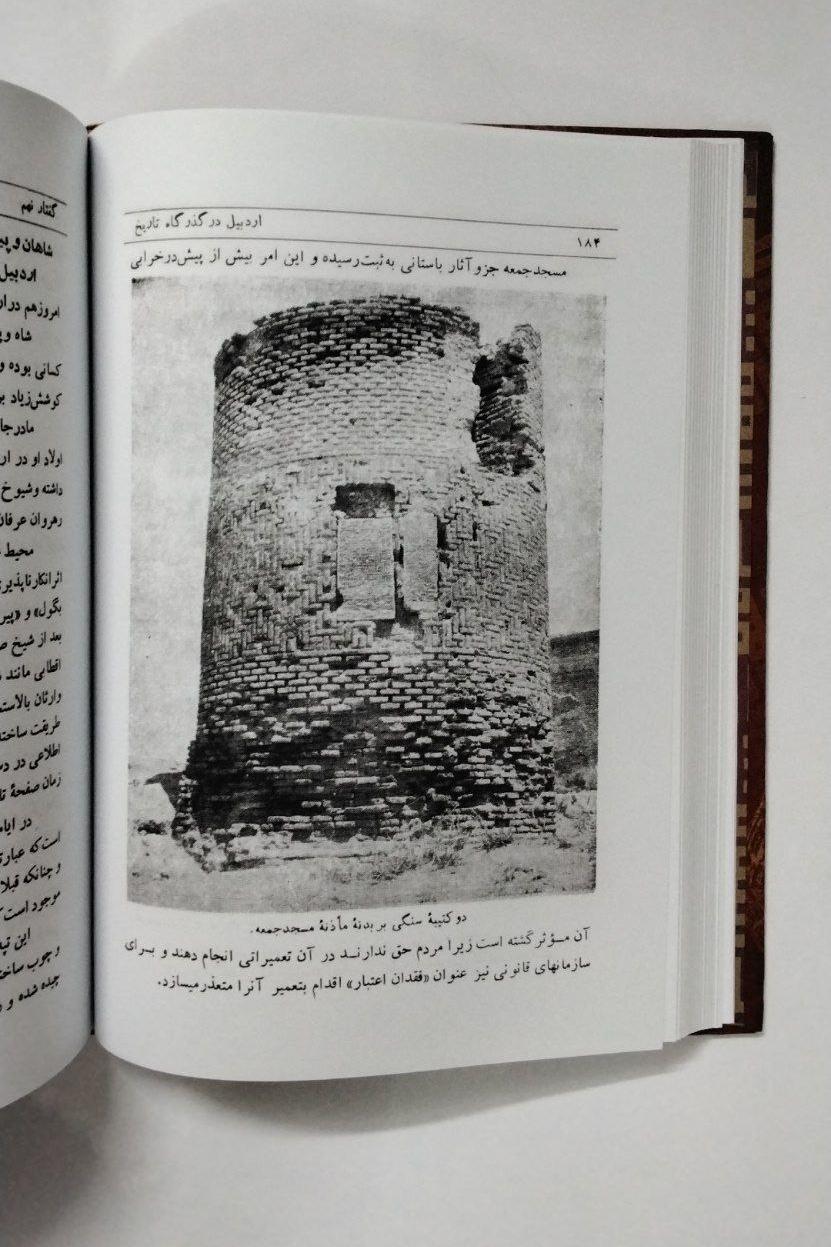 ۱۸۴
اردبیل در گذرگاه تاریخ
مسجدجمعه جزو آثار باستانی به ثبت رسیده و این امر بیش از پیش در خرابی
دو کتیبهٔ سنگی بر بدنهٔ مأذنهٔ مسجدجمعه.
آن مؤثر گشته است زیرا مردم حق ندارند در آن تعمیراتی انجام دهند و برای
سازمانهای قانونی نیز عنوان «فقدان اعتبار» اقدام بتعمیر آنرا متعذر میسازد.
گفتار نهم
شاهان و
اردبیل
امروزهم
شاه و
کمانی بوده و
کوشش زیاد
اولاد او در
داشته وشیوخ
رهروان عرفان
محیط
اثر انکارناپذیر
بگول» و «پیر
بعد از شیخ
اقطابی مانند
وارثان
طریقت ساخته
اطلاعی در
زمان صفحهٔ
در
است که
و چنانکه
موجود است
این
و چوب
چیده شده و